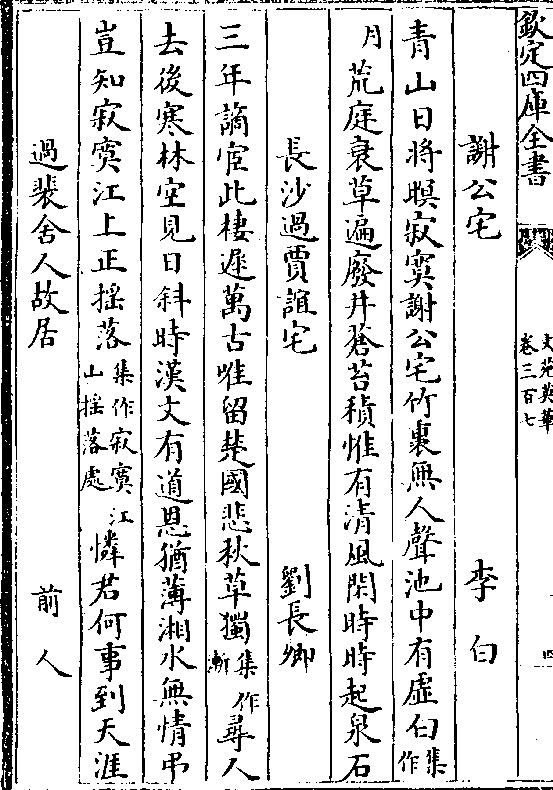 欽定四庫全書
文苑英華
卷三百七
四
謝公宅 李白
青山日將暝寂寞謝公宅竹裏無人聲池中有虛白集作
月荒庭衰草遍廢井蒼苔積惟有清風閑時時起泉石
長沙過賈誼宅 劉長卿
三年謫宦此棲遲萬古唯留楚國悲秋草獨集作漸尋人
去後寒林空見日斜時漢文有道恩猶薄湘水無情弔
豈知寂寞江上正搖落集作寂寞江山搖落處憐君何事到天涯
過裴舍人故居 前人